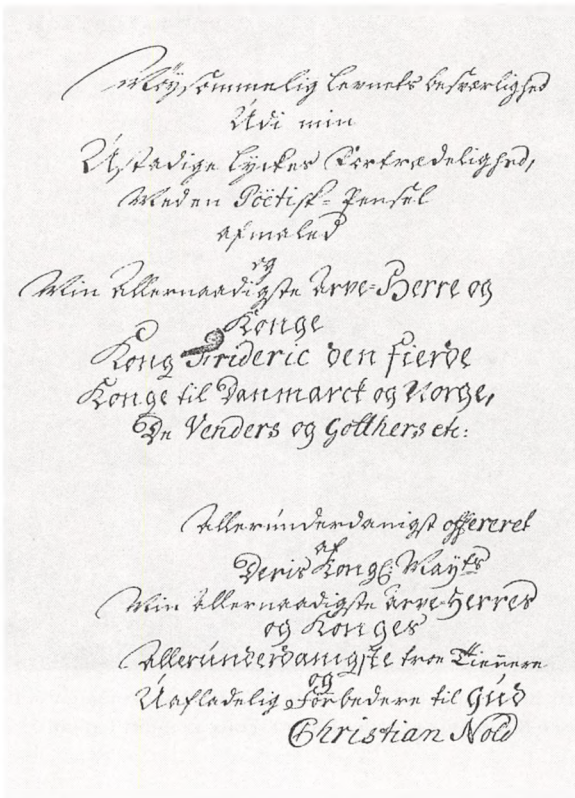 Møysommelig Lernets besværlighed
Udi min
Ustadige Lyckes Fortrædelighed,
Meden Poëtisk=Pensel
afmaled
og
Min Allernaadigste Arve=Herre og
Konge
Kong Frideric den Fierde
Konge til Danmarck og Norge,
De Venders og Gotthers etc:
Allerúnderdanigst offereret
af
Deris Kongl: Mayts
Min Allernaadigste Arve=Herres
og Konges
Allerúnderdanigste troe Tiennere
og
Uafladelig Forbedere til Gúd
Christian Nold